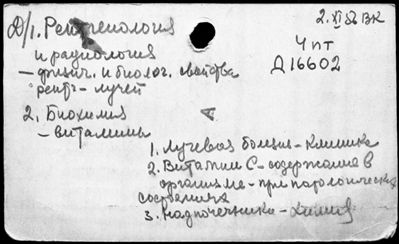 Д/1. Рентгенология
и радиология
– физич. и биолог. свойства
рентг-лучей
2. Биохимия
– витамины
2. XI 52 ВК
Чпт
Д16602
А
1. Лучевая болезнь – клиника
2. Витамин С – содержание в
организме – при патологических
состояниях
3. Надпочечники – химия